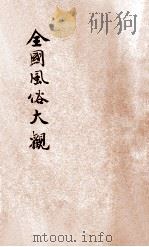 全國風俗大觀
mtoou.info